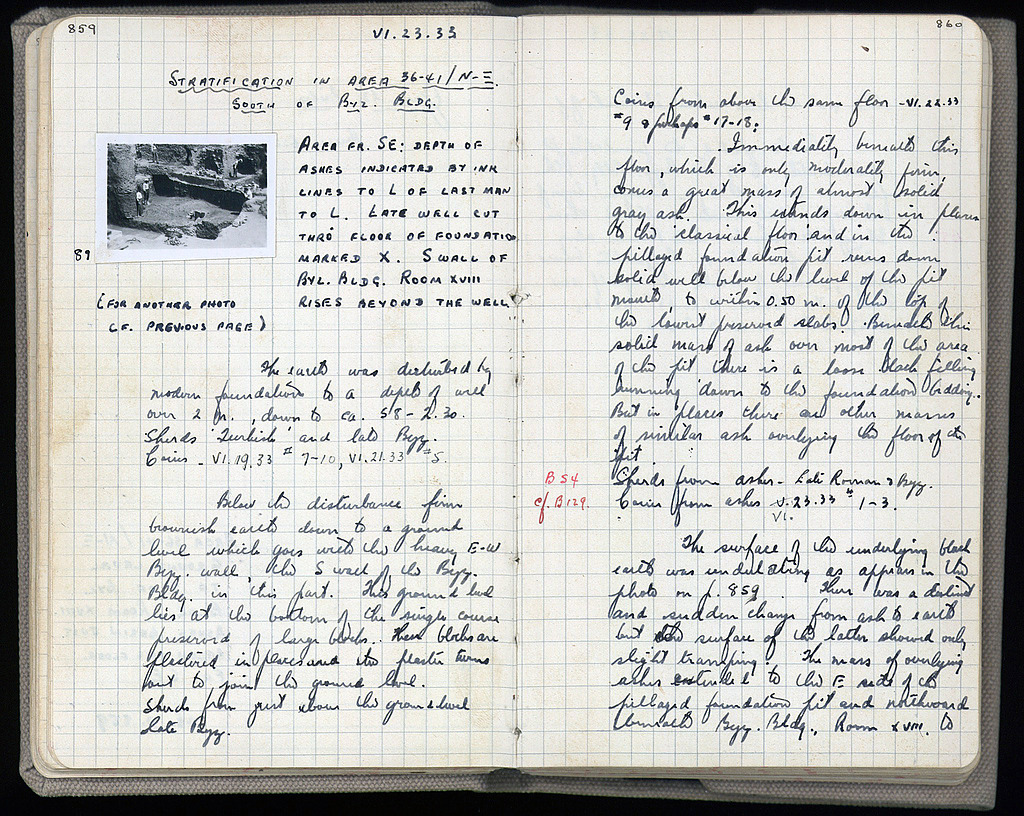 859
VI.23.33
STRATIFICATION IN AREA 36-41/N-Ξ.
SOUTH OF BYZ. BLDG.
AREA FR. SE: DEPTH OF
ASHES INDICATED BY INK
LINES TO L OF LAST MAN
TO L. LATE WELL CUT
THRO FLOOR OF FOUNDATIO
MARKED X. S WALL OF
BYZ. BLDG. ROOM XVIII
RISES BEYOND THE WELL
89
(FOR ANOTHER PHOTO
CF. PREVIOUS PAGE)
The earth was disturbed by
modern foundations to a depth of well
over 2 m., down to ca. 58 - 2.30.
Sherds 'Turkish' and late Byz.
Coins - VI.19.33 # 7-10, VI.21.33 #5.
Below the disturbance firm
brownish earth down to a ground
level which goes with the heavy E-W
Byz. wall, the S wall of the Byz.
Bldg. in this part. This ground level
lies at the bottom of the single course
preserved of large blocks. These blocks are
plastered in places and the plaster turns
out to join the ground level.
Sherds from just above the ground level
late Byz.
860
Coins from above the same floor - VI.22.33
#9 & perhaps #17-18.
Immediately beneath this
floor, which is only moderately firm,
comes a great mass of almost solid
gray ash. This extends down in places
to the 'classical floor' and in the
pillaged foundation pit runs down
solid well below the level of the pit
mouth to within 0.50 m. of the top of
the lowest preserved slabs. Beneath this
solid mass of ash over most of the area
of the pit there is a loose black filling
running down to the foundation bedding.
But in places there are other masses
of similar ash overlying the floor of the
pit
Sherds from ashes - Late Roman & Byz.
B 54
cf. B 129.
Coins from ashes V.23.33 # 1-3.
VI.
The surface of the underlying black
earth was undulating as appears in the
photo on p. 859. There was a distinct
and sudden change from ash to earth
but the surface of the latter showed only
slight tramping. The mass of overlying
ashes extended to the E side of the
pillaged foundation pit and northward
beneath Byz. Bldg., Room XVIII. to